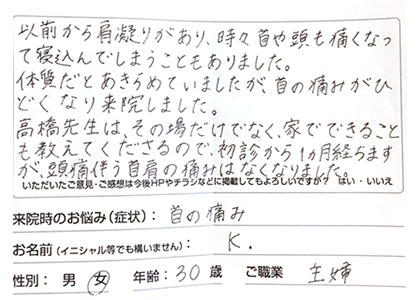 以前から肩凝りがあり、時々首や頭も痛くなっ
て寝込んでしまうこともありました。
体質だとあきらめていましたが、首の痛みがひ
どくなり来院しました。
高橋先生は、その場だけでなく、家でできること
も教えてくださるので、初診から1ヵ月経ちます
が、頭痛伴う首肩の痛みはなくなりました。
いただいたご意見・ご感想は今後HPやチラシなどに掲載してもよろしいですか？ はい・いいえ
来院時のお悩み(症状)： 首の痛み
お名前(イニシャル等でも構いません)： K.
性別： 男 女 年齢：30歳 ご職業 主婦